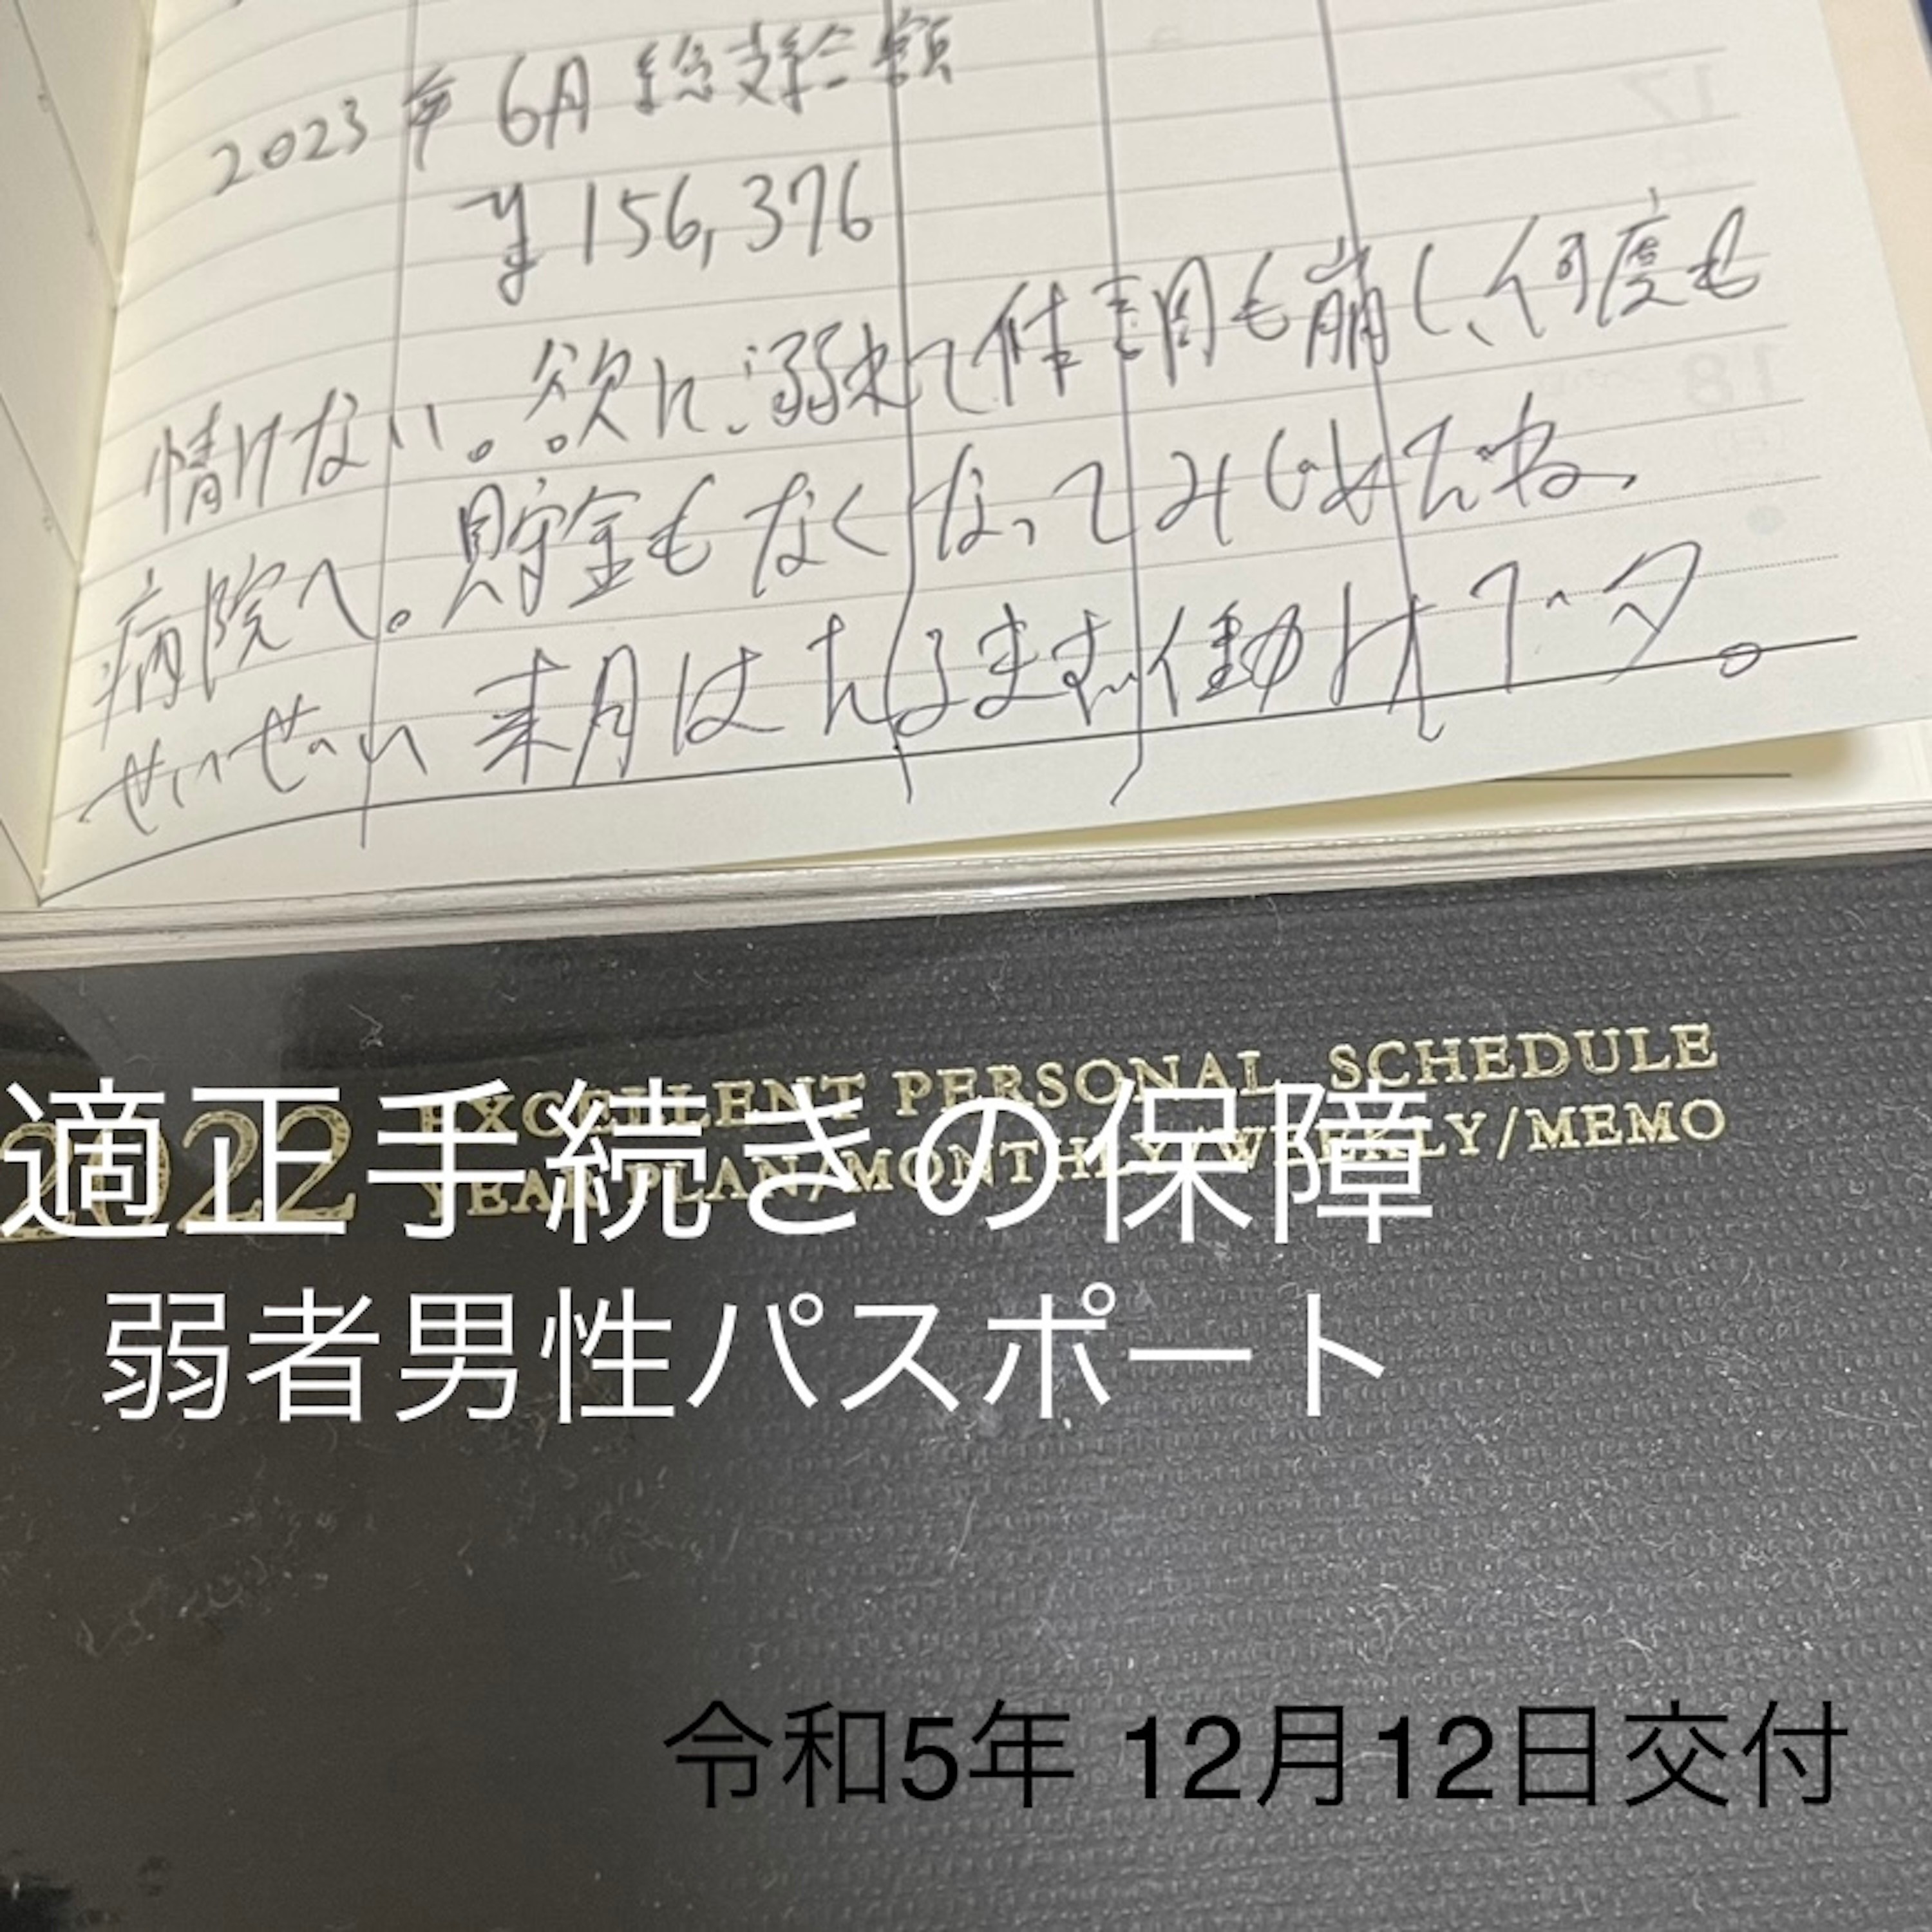 2023年6月総支給額
¥156,376
情けない。欲に溺れて体調も崩し、何度も
病院へ。貯金もなくなってみじめだね。
せいぜい来月はたるまず働けアータ。
2022
EXCELLENT PERSONAL SCHEDULE
YEAR PLAN/MONTHLY/WEEKLY/MEMO
適正手続きの保障
弱者男性パスポート
令和5年 12月12日交付
17
18